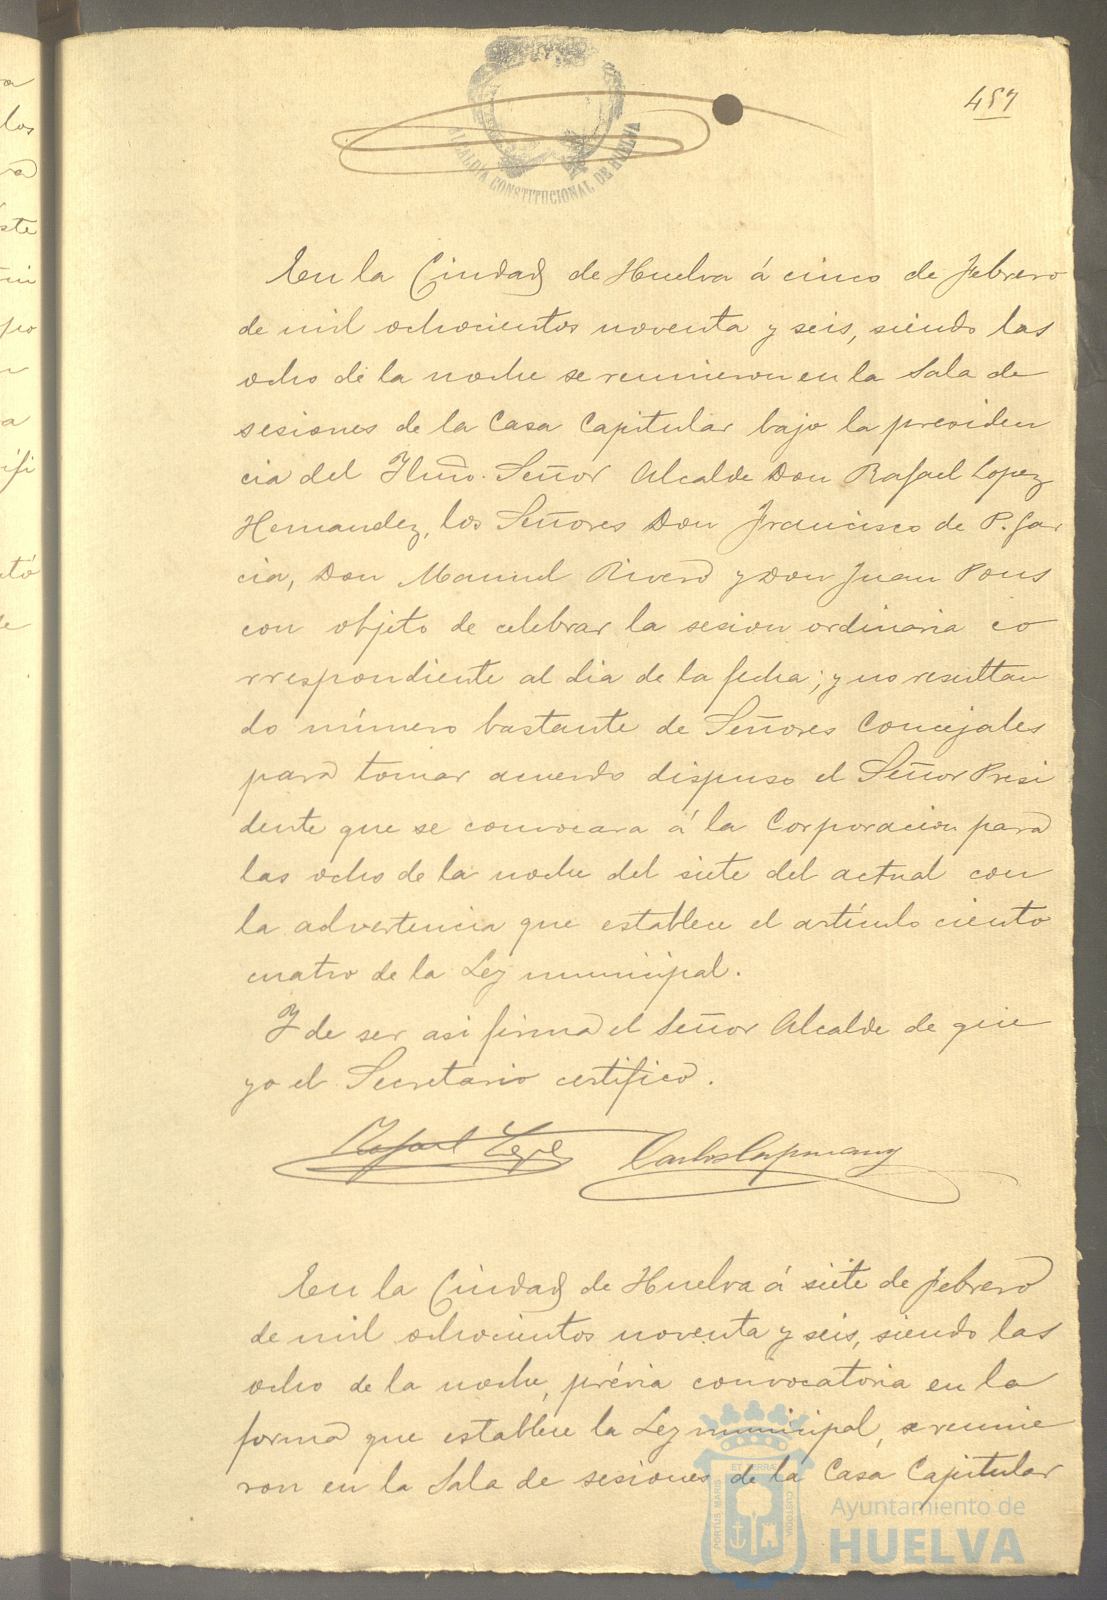 457
ALCALDÍA CONSTITUCIONAL DE HUELVA
En la Ciudad de Huelva á cinco de Febrero
de mil ochocientos noventa y seis, siendo las
ocho de la noche se reunieron en la Sala de
sesiones de la Casa Capitular bajo la presiden
cia del Iltmo. Señor Alcalde Don Rafael Lopez
Hernandez, los Señores Don Francisco de P. Gar
cia, Don Manuel Rivero y Don Juan Pons
con objeto de celebrar la sesion ordinaria co
rrespondiente al dia de la fecha; y no resultan
do número bastante de Señores Concejales
para tomar acuerdo dispuso el Señor Presi
dente que se convocara á la Corporacion para
las ocho de la noche del siete del actual con
la advertencia que establece el artículo ciento
cuatro de la Ley municipal.
Y de ser asi firma el Señor Alcalde de que
yo el Secretario certifico.
Rafael Lopez Carlos Capmany
En la Ciudad de Huelva á siete de Febrero
de mil ochocientos noventa y seis, siendo las
ocho de la noche, prévia convocatoria en la
forma que establece la Ley municipal, se reunie
ron en la Sala de sesiones de la Casa Capitular
PORTUS MARIS ET TERRÆ CUSTODIA
Ayuntamiento de
HUELVA